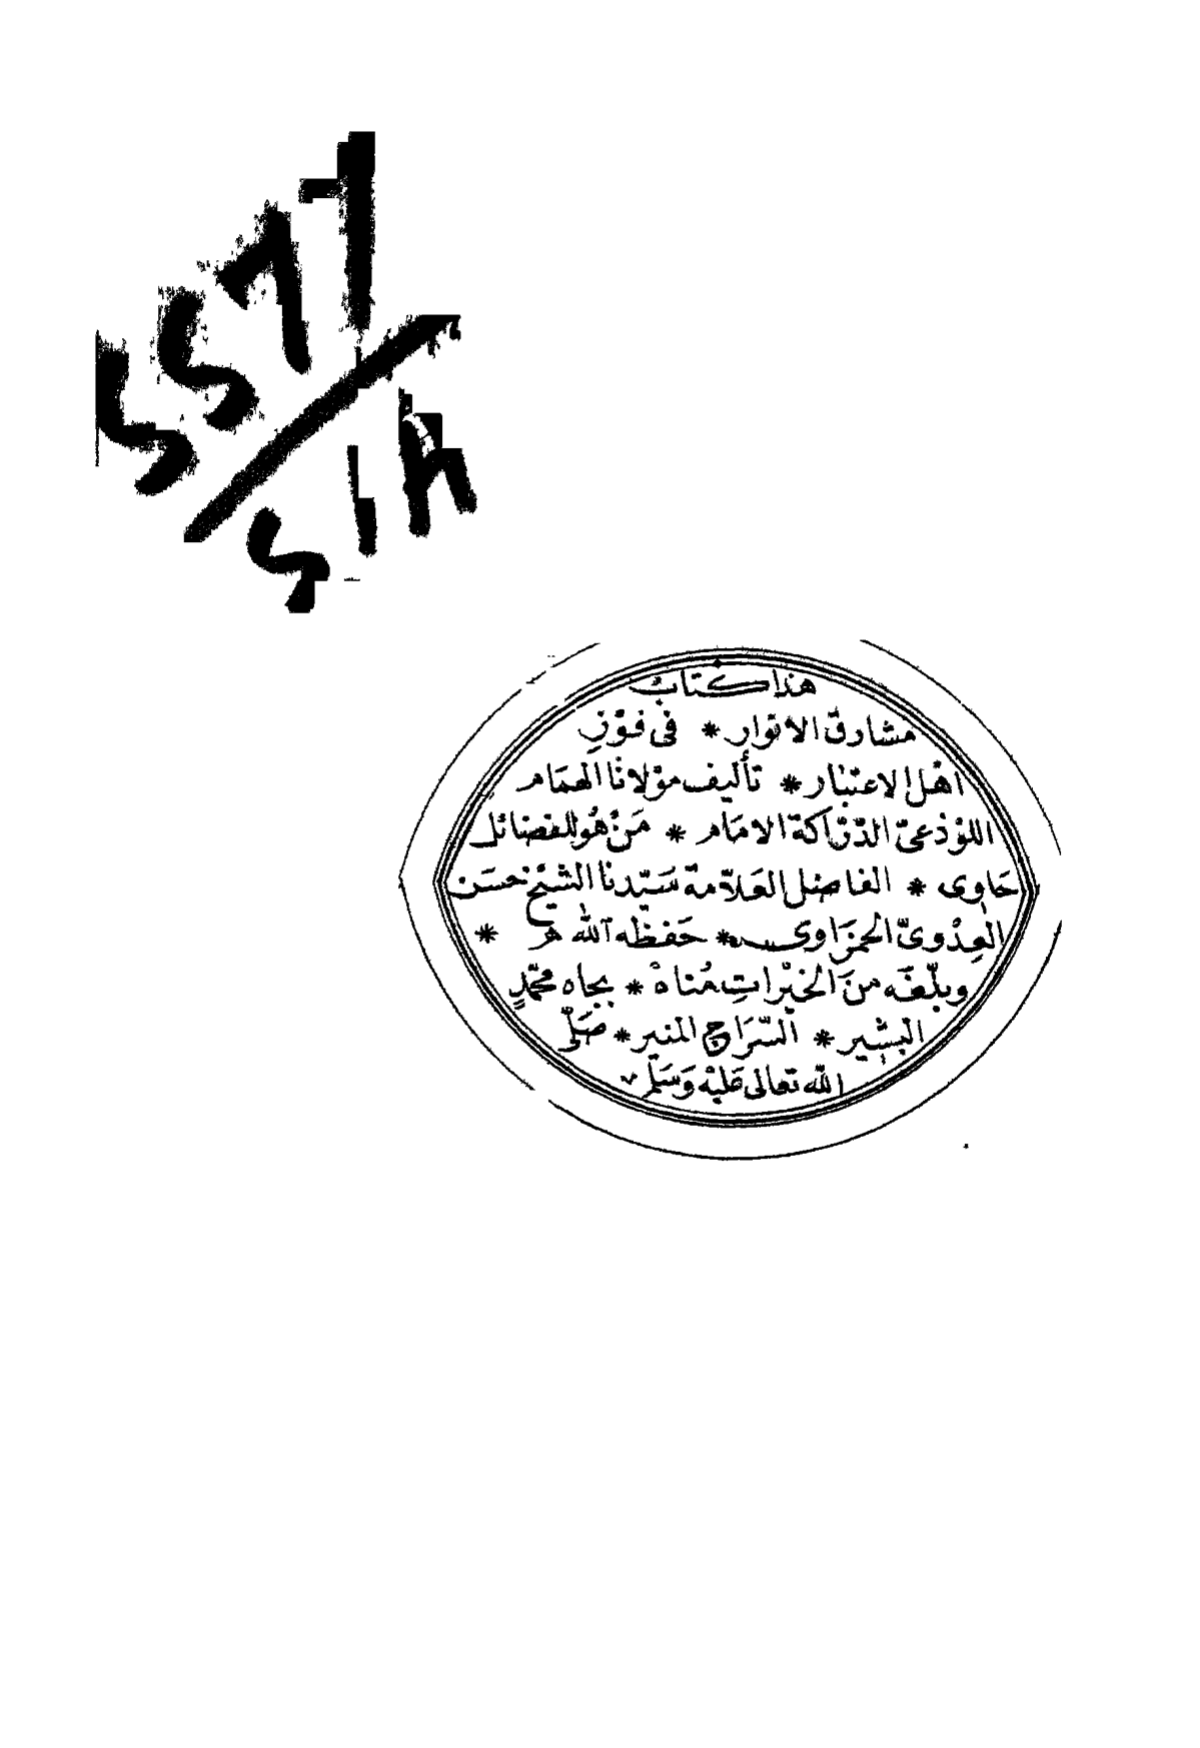 هذا كتاب
مشارق الانوار * فى فوز
أهل الاعتبار * تأليف مولانا الهمام
اللوذعىّ الدّرّاكة الامام * من هو للفضائل
حاوى * الفاضل العلّامة سيّدنا الشيخ حسن
العدوىّ الحمزاوى * حفظه الله *
وبلّغه من الخيرات مُناه * بجاه محمّدٍ
البشير * السّراج المنير * صلّى
الله تعالى عليه وسلم